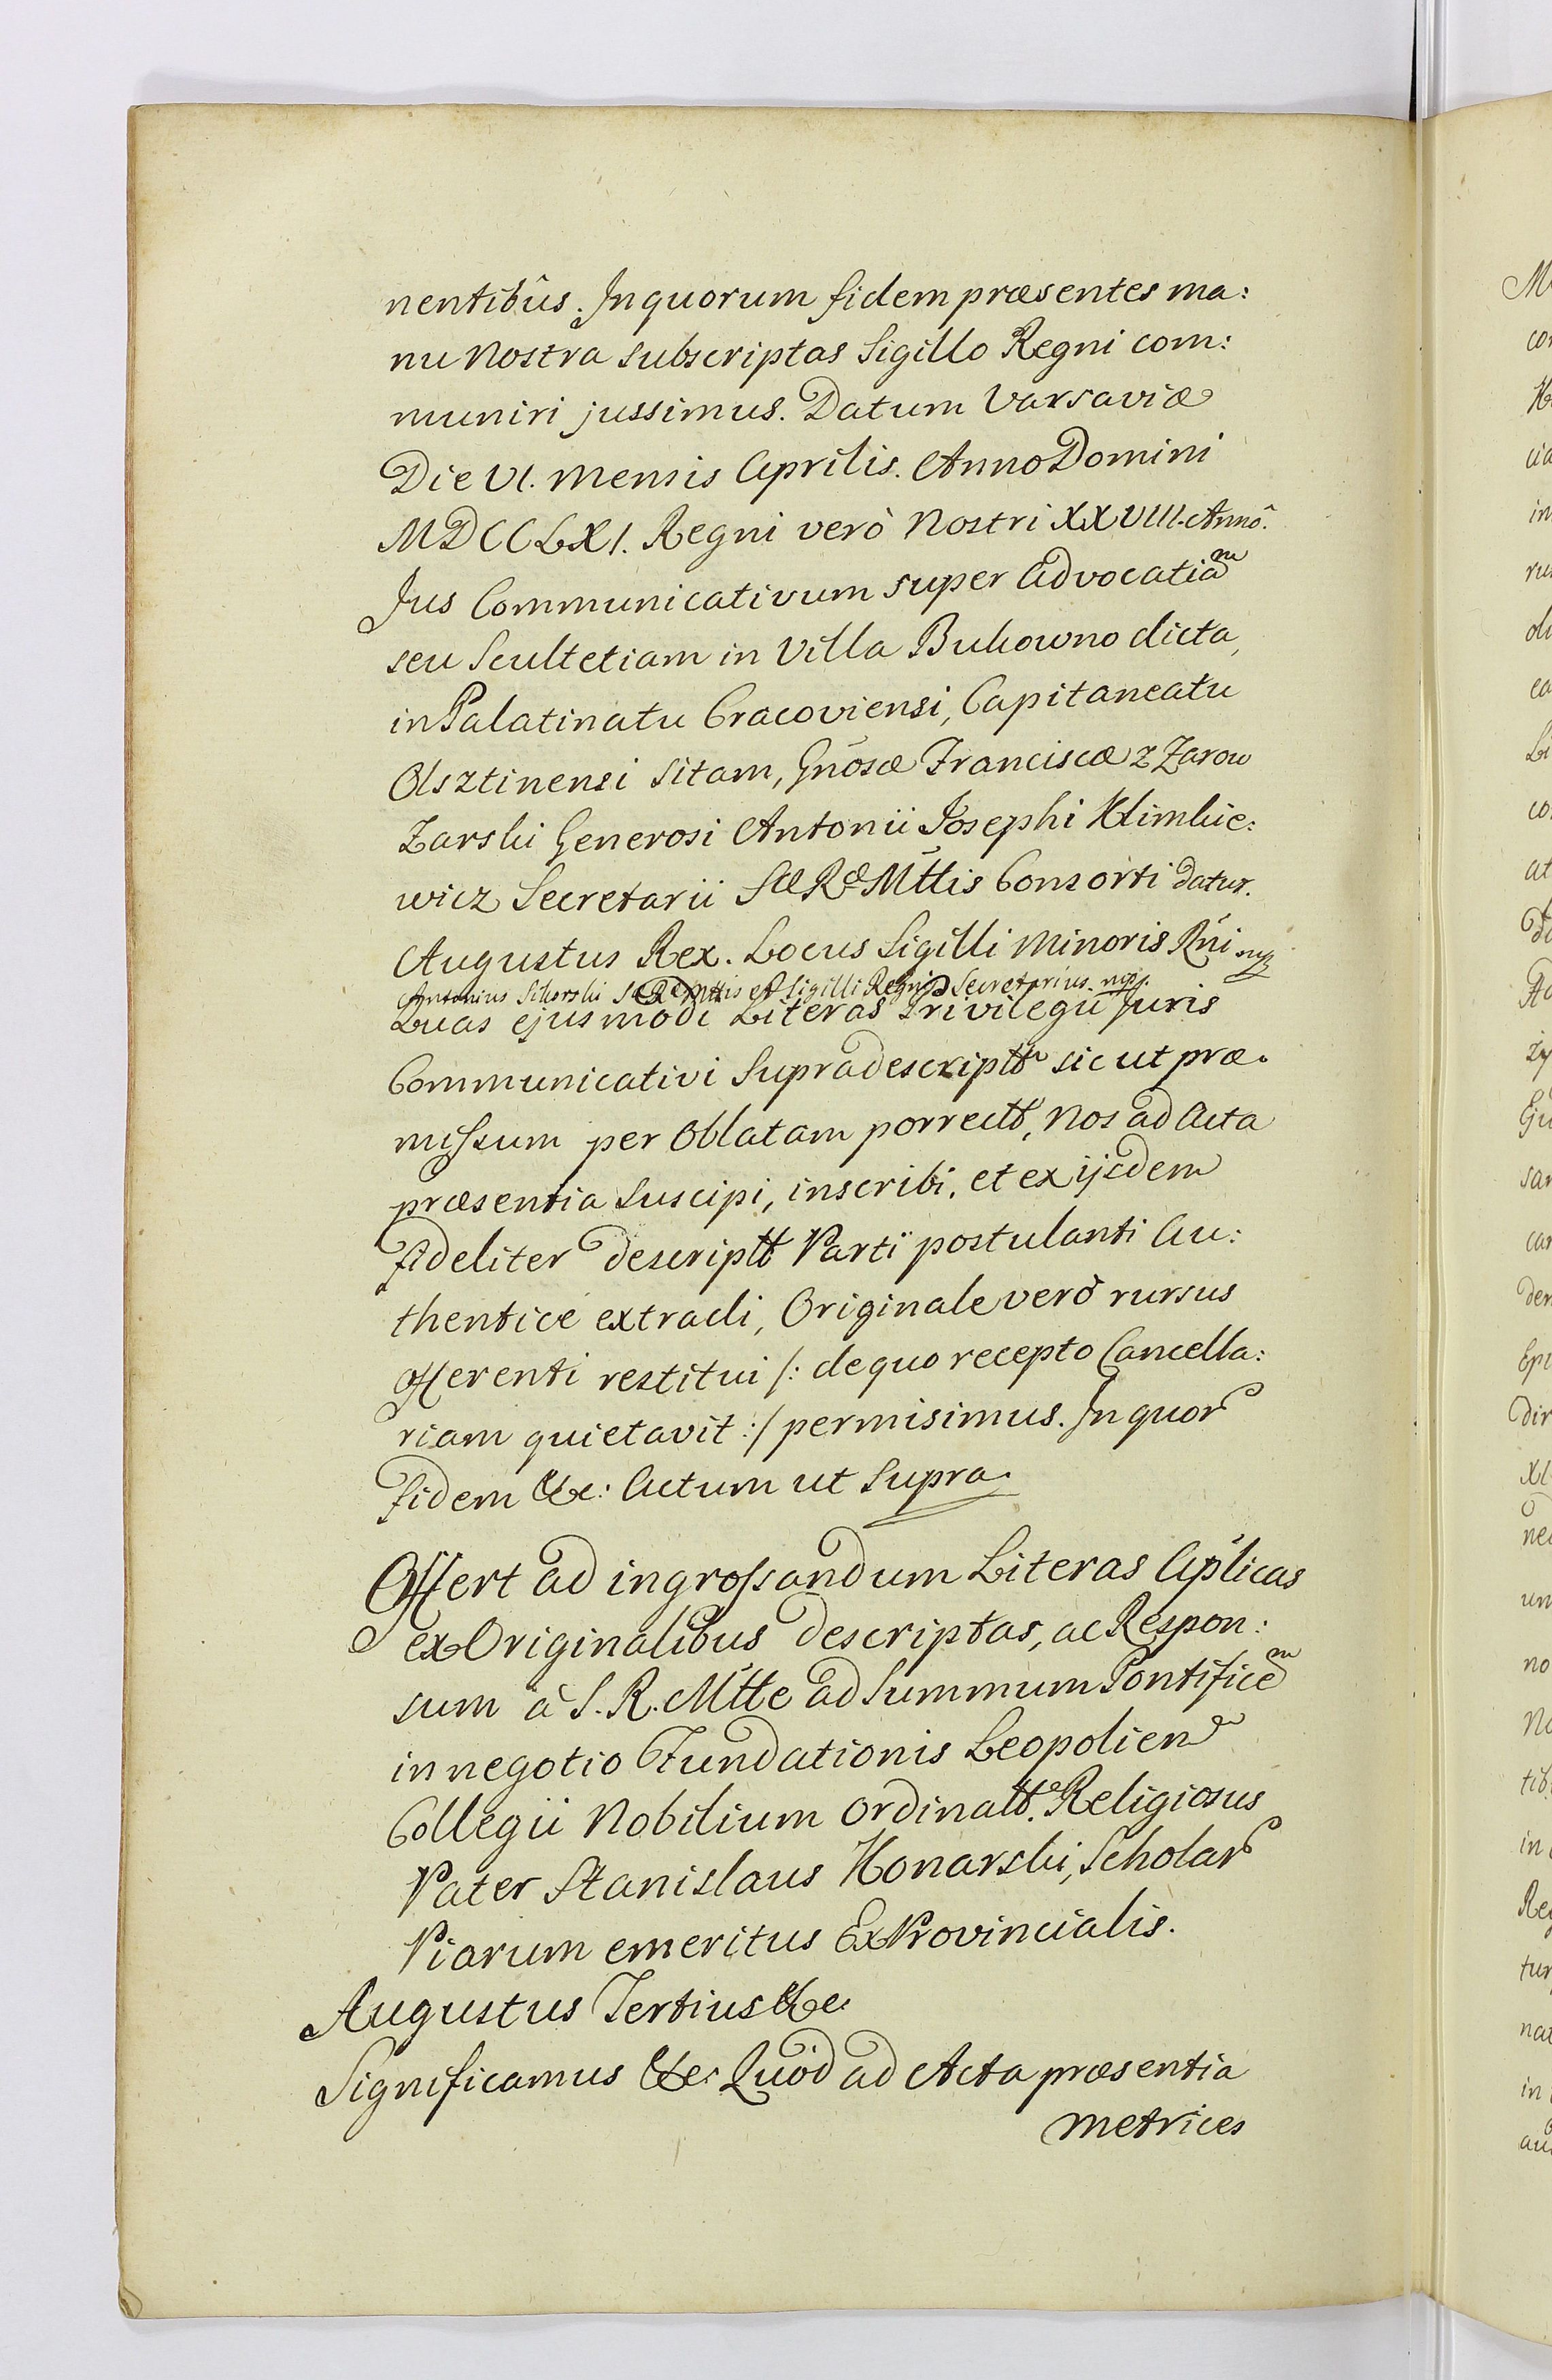 nentibûs. In quorum fidem præsentes ma:
nu Nostra subscriptas Sigillo Regni com:
muniri jussimus. Datum Varsaviæ
Die VI. Mensis Aprilis. Anno Domini
MDCCLXI. Regni verò Nostri XXVIII. Annô.
Jus Communicativum super Advocatiam
seu Scultetiam in Villa Bukowno dicta,
in Palatinatu Cracoviensi, Capitaneatu
Olsztinensi sitam, Gnosæ Franciscæ z Zarow
Zarski Generosi Antonii Josephi Klimkie:
wicz Secretarii SæRæMttis Consorti datur.
Augustus Rex. Locus Sigilli Minoris Rni
Antonius Sikorski SæRæMttis et Sigilli Regni Secretarius mpp.
Quas ejusmodi Literas Privilegii Juris
Communicativi Supradescriptt sic ut præ:
missum per Oblatam porrectt, Nos ad Acta
præsentia suscipi, inscribi, et ex ijsdem
fideliter descriptt Parti postulanti Au:
thenticè extradi, Originale verò rursus
Offerenti restitui /: de quo recepto Cancella:
riam quietavit :/ permisimus. In quor
fidem &c: Actum ut supra.
Offert ad ingrossandum Literas Aplicas
ex Originalibus descriptas, ac Respon:
sum à S. R. Mtte ad Summum Pontificem
in negotio Fundationis Leopolien
Collegii Nobilium Ordinatt. Religiosus
Pater Stanislaus Konarski, Scholar
Piarum emeritus ExProvincialis.
Augustus Tertius &c.
Significamus &c. Quòd ad Acta præsentia
Metrices